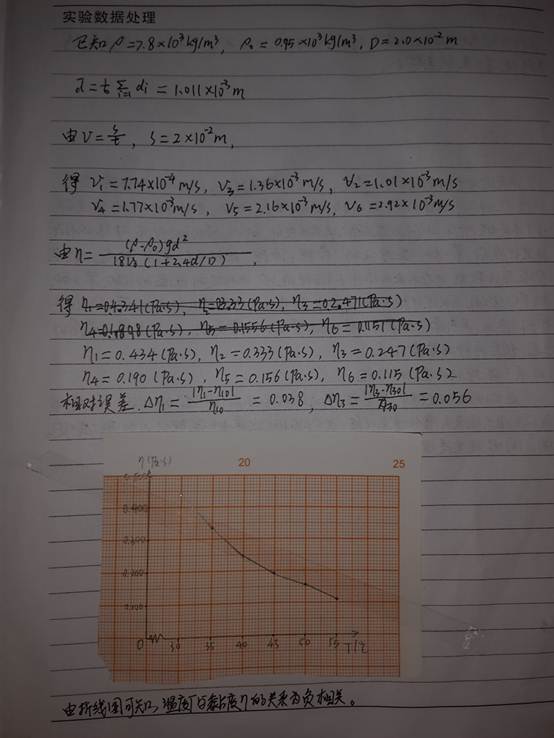 实验数据处理
已知 ρ=7.8×10³kg/m³, ρ₀=0.95×10³kg/m³, D=2.0×10⁻²m
d̄=1/6 Σ di = 1.011×10⁻³m
由V=s/t, S=2×10⁻²m,
得 V₁=7.74×10⁻⁴m/s, V₃=1.36×10⁻³m/s, V₂=1.01×10⁻³m/s
V₄=1.77×10⁻³m/s, V₅=2.16×10⁻³m/s, V₆=2.92×10⁻³m/s
由η=(ρ-ρ₀)gd²/18V₀(1+2.4d/D),
得
η₁=0.434(Pa·s), η₂=0.333(Pa·s), η₃=0.247(Pa·s)
η₄=0.190(Pa·s), η₅=0.156(Pa·s), η₆=0.115(Pa·s)
相对误差. Δη₁=|η₁-η₁₀|/η₁₀=0.038, Δη₃=|η₃-η₃₀|/η₃₀=0.056
η(Pa·s) 20 25
0.400
0.300
0.200
0.100
0 30 35 40 45 50 55 T/℃
由折线图可知,温度T与黏度η的关系为负相关。